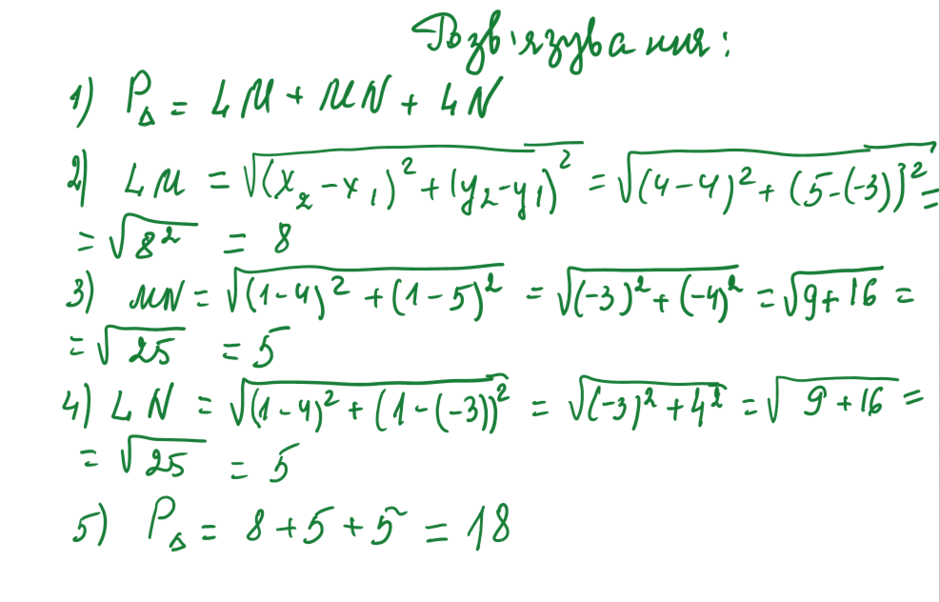 Розв'язування:
1) P△ = LM + MN + LN
2) LM = √((x₂ - x₁)² + (y₂ - y₁)²) = √((4 - 4)² + (5 - (-3))²) =
= √(8²) = 8
3) MN = √((1 - 4)² + (1 - 5)²) = √((-3)² + (-4)²) = √(9 + 16) =
= √25 = 5
4) LN = √((1 - 4)² + (1 - (-3))²) = √((-3)² + 4²) = √(9 + 16) =
= √25 = 5
5) P△ = 8 + 5 + 5 = 18